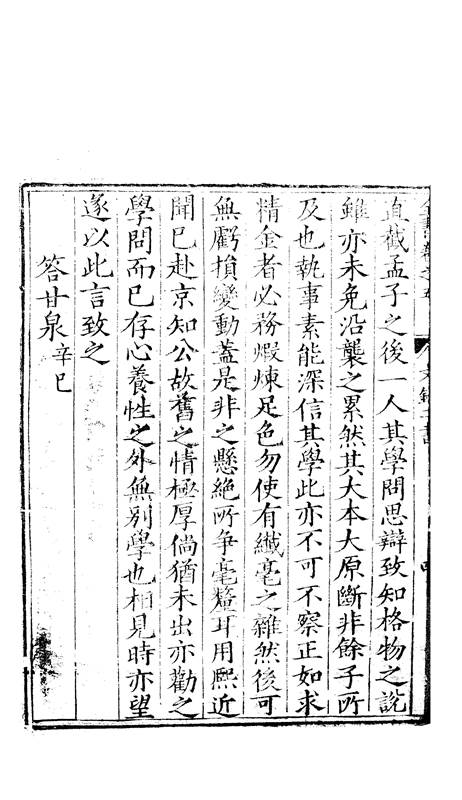 直截孟子之後一人其學問思辯致知格物之說
雖亦未免沿襲之累然其大本大原斷非餘子所
及也執事素能深信其學此亦不可不察正如求
精金者必務煆煉足色勿使有纖毫之雜然後可
無虧損變動蓋是非之懸絕所爭毫釐耳用熙近
聞已赴京知公故舊之情極厚倘猶未出亦勸之
學問而已存心養性之外無別學也相見時亦望
遂以此言致之
答甘泉辛巳